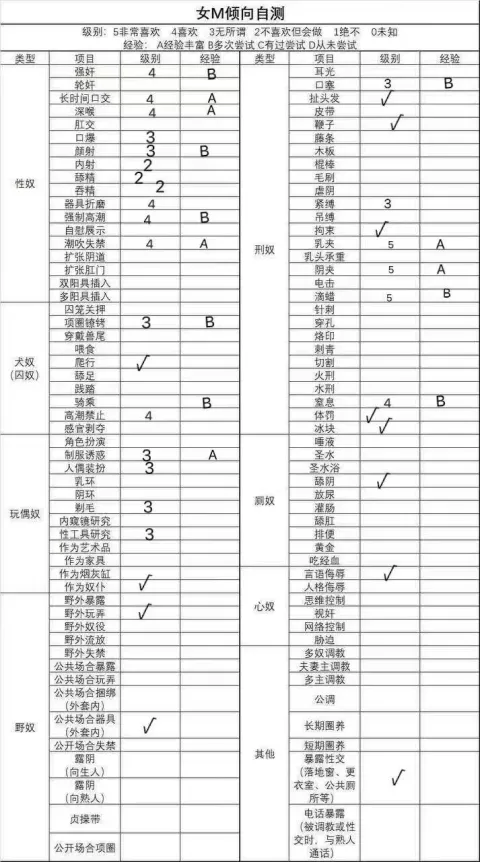 女M倾向自测
级别：5非常喜欢 4喜欢 3无所谓 2不喜欢但会做 1绝不 0未知
经验：A经验丰富 B多次尝试 C有过尝试 D从未尝试
类型 项目 级别 经验
性奴
强奸 4 B
轮奸
长时间口交 4 A
深喉 4 A
肛交
口爆 3
颜射 3 B
内射 2
舔精 2
吞精 2
器具折磨 4
强制高潮 4 B
自慰展示
潮吹失禁 4 A
扩张阴道
扩张肛门
双阳具插入
多阳具插入
犬奴
（囚奴）
囚笼关押
项圈镣铐 3 B
穿戴兽尾
喂食
爬行 √
舔足
践踏
骑乘 B
高潮禁止 4
感官剥夺
玩偶奴
角色扮演
制服诱惑 3 A
人偶装扮 3
乳环
阴环
剃毛 3
内窥镜研究
性工具研究 3
作为艺术品
作为家具
作为烟灰缸
作为奴仆 √
野奴
野外暴露
野外玩弄 √
野外奴役
野外流放
野外失禁
公共场合暴露
公共场合玩弄
公共场合捆绑
（外套内）
公共场合器具
（外套内） √
公开场合失禁
露阴
（向生人）
露阴
（向熟人）
贞操带
公开场合项圈
类型 项目 级别 经验
刑奴
耳光
口塞 3 B
扯头发 √
皮带
鞭子 √
藤条
木板
棍棒
毛刷
虐阴
紧缚 3
吊缚
拘束 √
乳夹 5 A
乳头承重
阴夹 5 A
电击
滴蜡 5 B
针刺
穿孔
烙印
刺青
切割
火刑
水刑
窒息 4 B
体罚 √
冰块 √
厕奴
唾液
圣水
圣水浴
舔阴 √
放尿
灌肠
舔肛
排便
黄金
吃经血
心奴
言语侮辱 √
人格侮辱
思维控制
视奸
网络控制
胁迫
其他
多奴调教
夫妻主调教
多主调教
公调
长期圈养
短期圈养
暴露性交
（落地窗、更
衣室、公共厕
所等） √
电话暴露
（被调教或性
交时，与熟人
通话）